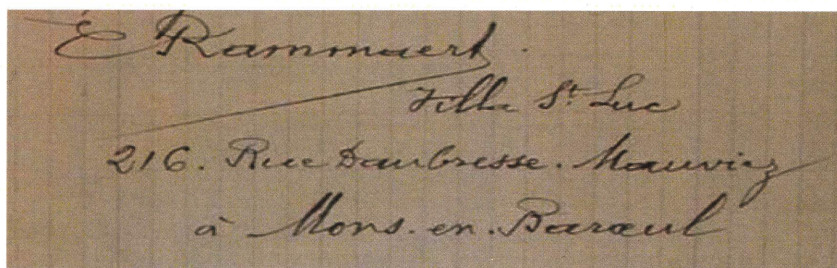 E Rammaert.
Villa St Luc
216. Rue Daubresse. Mauviez
à Mons. en. Barœul